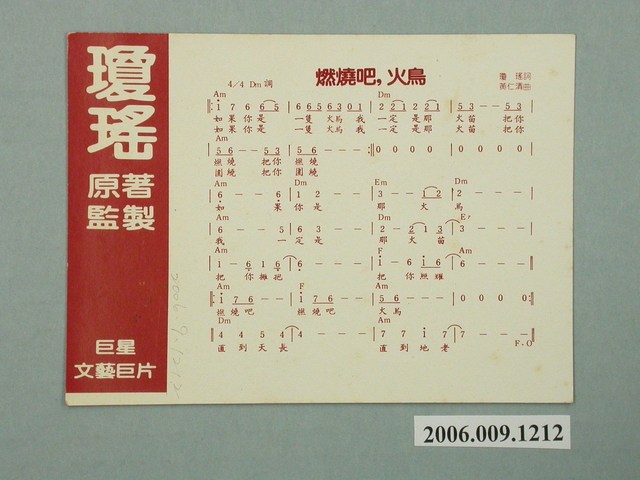 瓊瑤
原著
監製
巨星
文藝巨片
燃燒吧,火鳥
4/4 Dm調
瓊瑤詞
黃仁清曲
Am Dm
如果你是 一隻火鳥 我一定是那火苗 把你
如果你是 一隻火鳥 我一定是那火苗 把你
Am
5 6 - - 5 3 5 6 - - 0 0 0 0 0 0 0 0
燃燒 把你燃燒
圍繞 把你圍繞
Am Dm Em Dm
6 - - 6 1 2 - - 3 - - i 2 2 - - -
如 果你是 那 火 鳥
Am Dm E7
6 - - 5 6 3 - - 2 - 2 1 3 3 - - -
我 一定是 那火苗
Am F Am
1 - 6 1 6 6 - - - i - 6 i 6 6 - - -
把你擁抱 把你照耀
Am F Am
i 7 6 - - i 7 6 - - 5 6 - - - 0 0 0 0
燃燒吧 燃燒吧 火鳥
Dm Am
4 4 5 4 4 - - - 7 7 i 7 7 - - -
直到天長 直到地老
F.O
2006.009.1212